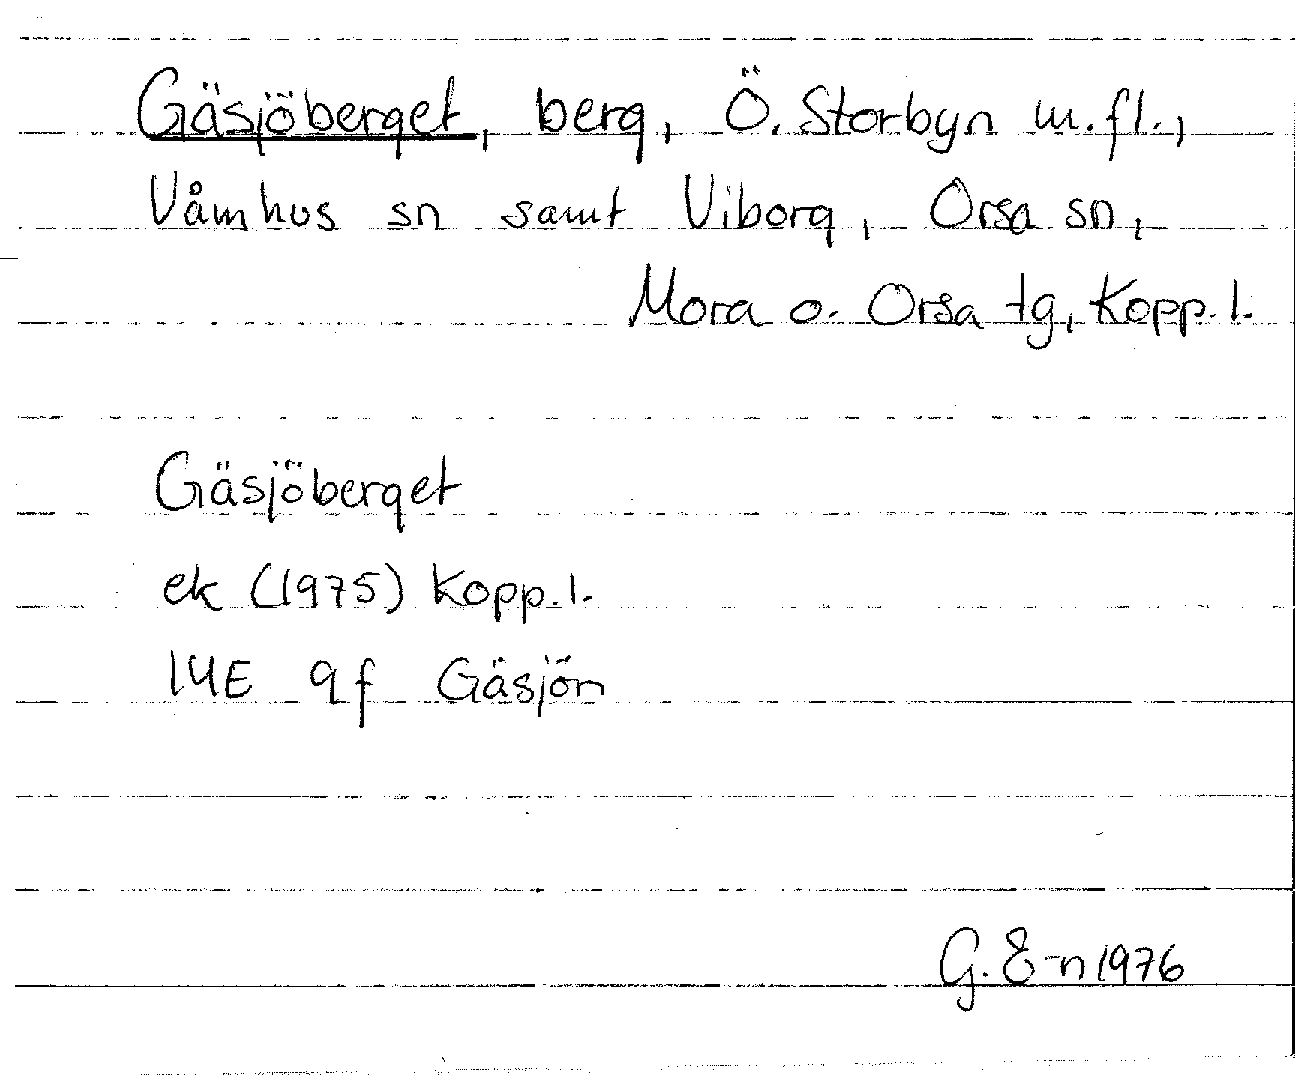 Gäsjöberget, berg, Ö. Storbyn m.fl.,
Våmhus sn samt Viborg, Orsa sn,
Mora o. Orsa tg, Kopp. l.
Gäsjöberget
ek (1975) Kopp. l.
14E 9f Gäsjön
G. E-n 1976